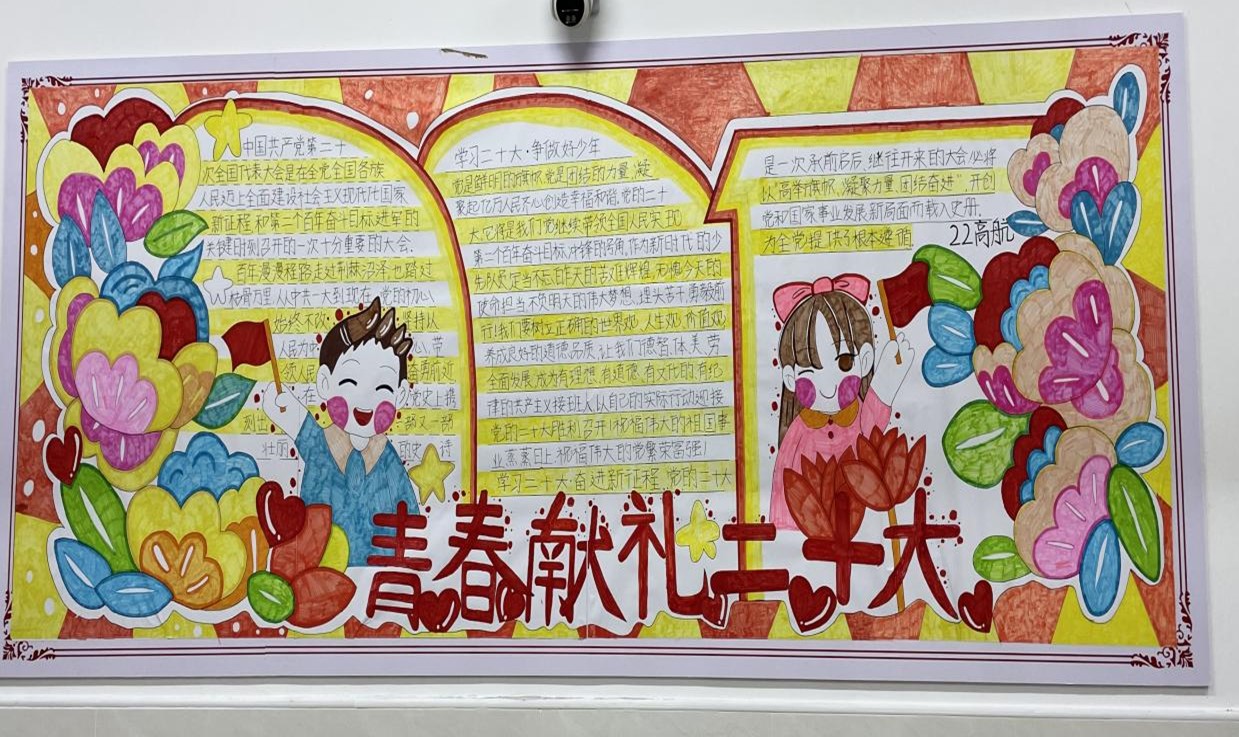 中国共产党第二十
次全国代表大会是在全党全国各族
人民迈上全面建设社会主义现代化国家
新征程和第二个百年奋斗目标进军的
关键时刻召开的一次十分重要的大会.
百年漫漫程路走过荆棘沼泽也踏过
枯骨万里,从中共一大到现在,党的初心
始终不改 坚持从
人民为 心、带
领人民 奋勇前进
在 党史上携
刻出 一部又一部
壮丽 的史诗
学习二十大·争做好少年
党是鲜明的旗帜,党是团结的力量,凝
聚起亿万人民齐心创造幸福和谐,党的二十
大它将是我们党继续带领全国人民实现
第二个百年奋斗目标,冲锋的号角,作为新时代的少
先队员定当不忘昨天的苦难辉煌,无愧今天的
使命担当不负明天的伟大梦想,埋头苦干,勇毅前
行!我们要树立正确的世界观、人生观、价值观
养成良好的道德品质,让我们德智体美劳
全面发展,成为有理想、有道德、有文化、有纪
律的共产主义接班人以自己的实际行动迎接
党的二十大胜利召开!祝福伟大的祖国事
业蒸蒸日上,祝福伟大的党繁荣富强!
学习二十大·奋进新征程,党的二十大
是一次承前启后,继往开来的大会,必将
以“高举旗帜、凝聚力量、团结奋进”,开创
党和国家事业发展新局面而载入史册.
为全党提供了根本遵循
22高航
青春献礼二十大